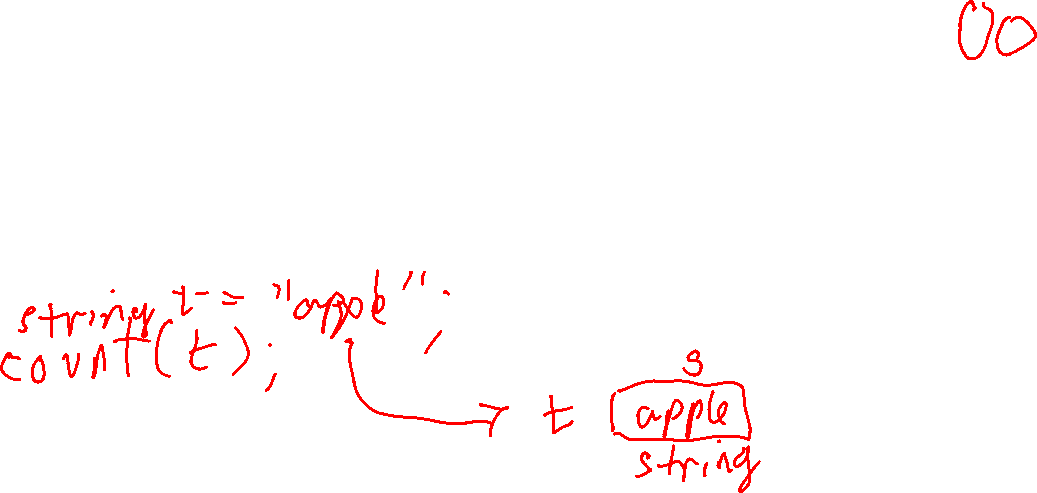 00
string t = "apple";
count(t);
s
t apple
string